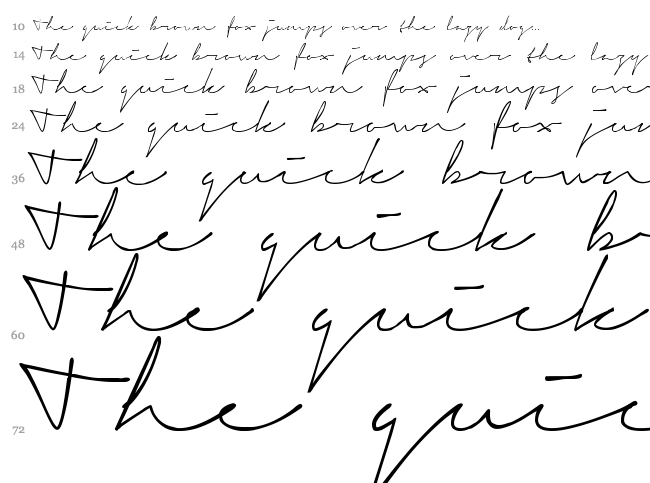 10 The quick brown fox jumps over the lazy dog...
14 The quick brown fox jumps over the lazy
18 The quick brown fox jumps over
24 The quick brown fox jum
36 The quick brown
48 The quick b
60 The quick
72 The quic